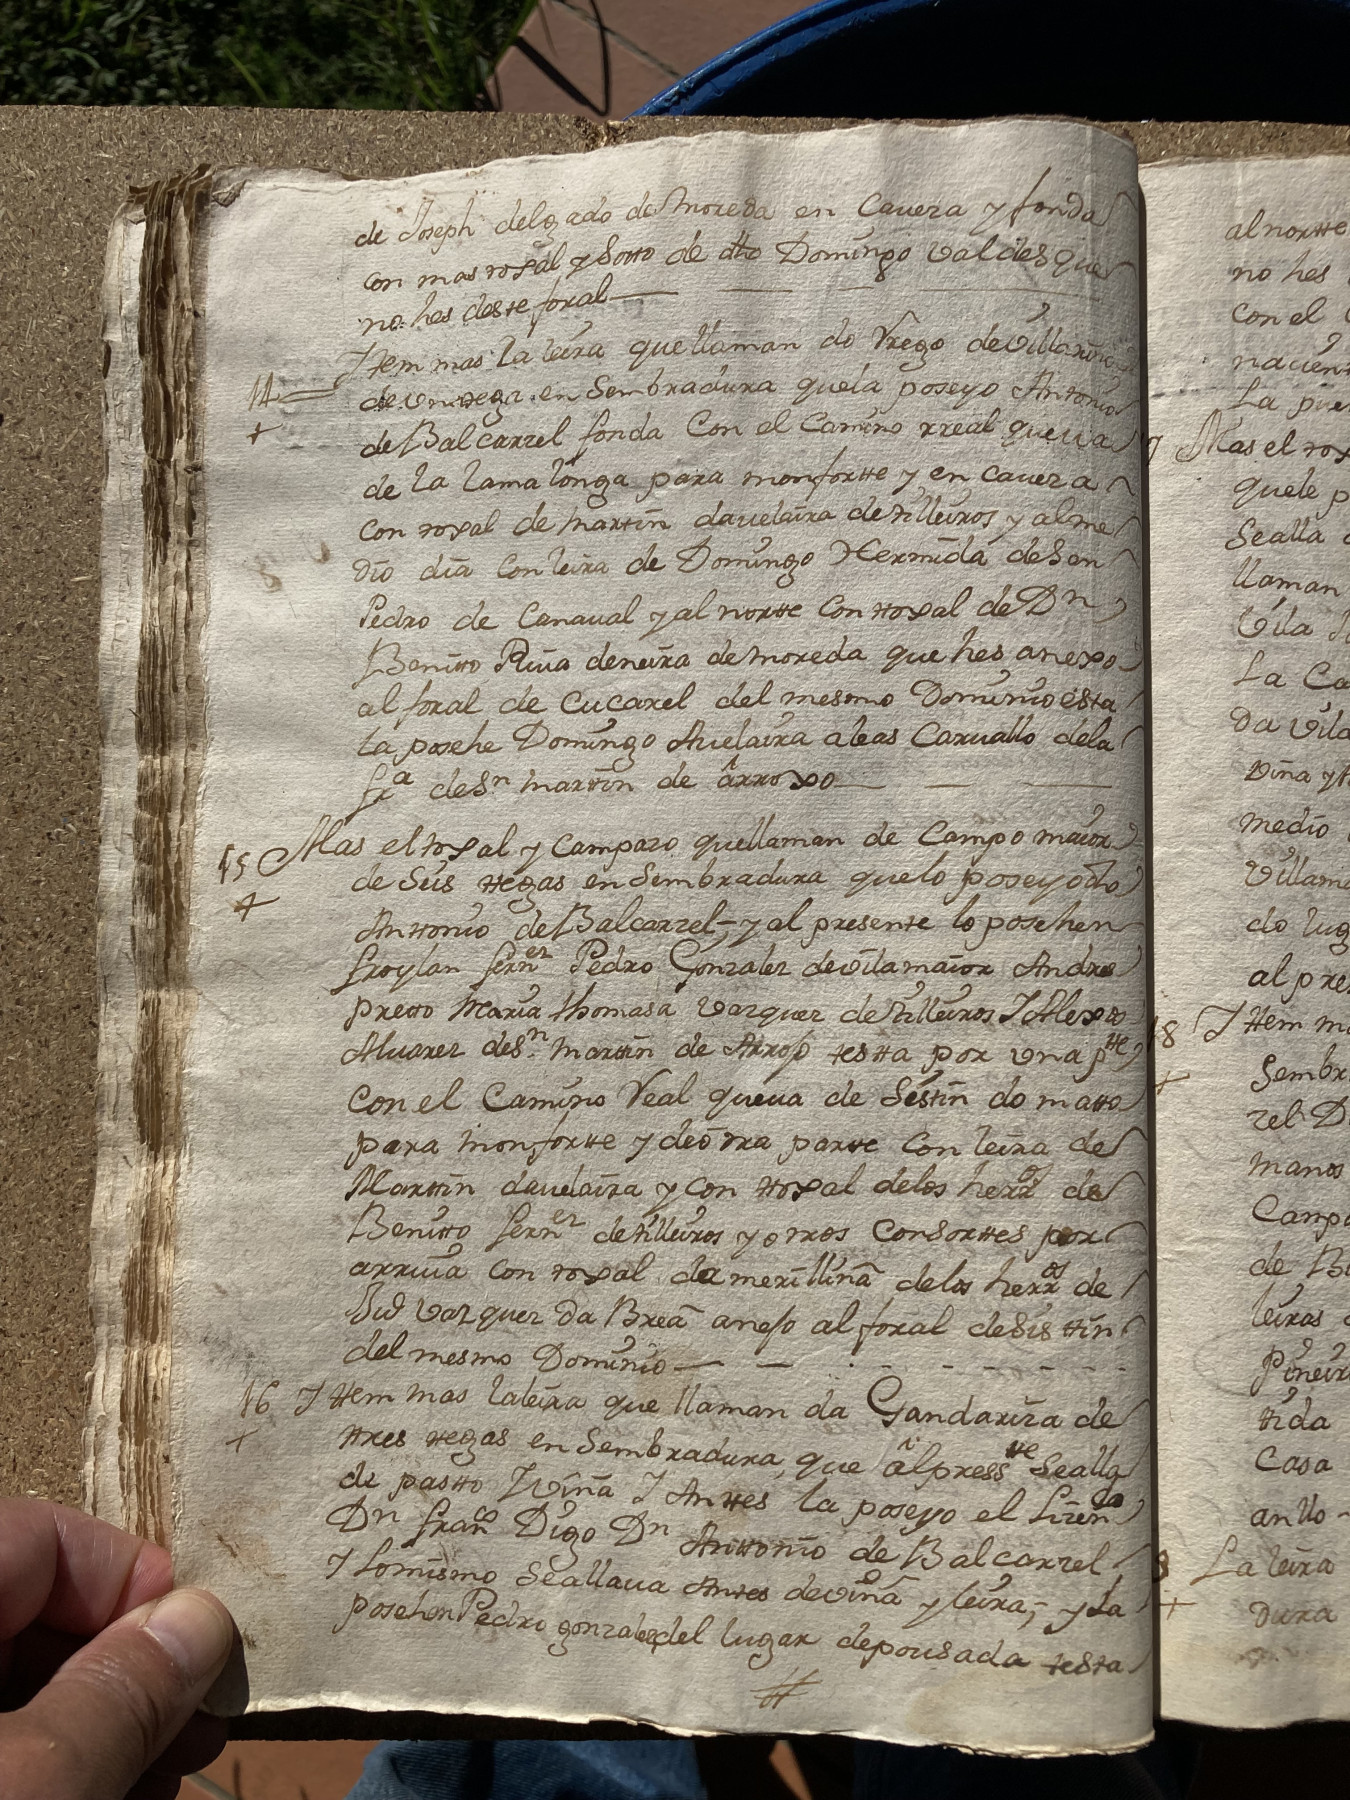 de Joseph delgado de Moreda en Cauera y fonda
con mas roxal y Sotto de dho Domingo Valdes que
no hes deste foral
14 Ittem mas la leira que llaman do Vrego de Villarino
+ de un tega en Sembradura que la poseyo Antonio
de Balcarzel fonda Con el Camino rreal que va
de la lama longa para monfortte y en cauera
con roxal de Marttin davelaira de tilleiros y al me
dio dia con leira de Domingo Hermida de San
Pedro de Canaual y al nortte con ttoxal de Dn
Benitto Riua deneira de Moreda que hes anexo
al foral de Cucarel del mesmo Dominio esta
la posehe Domingo Auelaira aleas Caruallo dela
fra de Sn Marttin de arroxo
15 Mas el toxal y Camparo quellaman de Campo maior
+ de Seis ttegas en Sembradura quelo poseyo dho
Anttonio de Balcarzel, y al presente lo posehen
froylan fernez Pedro Gonzalez de vilamaior Andres
pretto Maria thomasa Vazquez de tilleiros I Alexo
Aluarez de Sn Marttin de Arrojo testta por una ptte
con el Camino Real que ua de Sistin do matto
para monfortte y de otra partte con leira de
Marttin davelaira y con ttoxal de los herros de
Benitto fernez de tilleiros y otros Consorttes por
arriua con roxal da merillina de los herros de
Bid Vazquez da Brea anejo al foral de Sisttin
del mesmo Dominio
16 Ittem mas la leira que llaman da Gandariza de
+ ttres ttegas en Sembradura, que al presstte Sealla
de pastto I viña I Anttes la poseyo el Lizendo
Dn franco Digo Dn Anttonio de Balcarzel
I Lo mismo Seallaua Antes de viña y leira, y la
posehen Pedro gonzalez del lugar de pousada testa
al nortte
no hes
con el
nacien
La
Mas el rox
quele p
Sealla
llaman
Vila
La Ca
da Vila
viña y
medio
Villame
do lug
al pre
18 Ittem m
+ Sembr
zel D
manos
Campo
de B
leiras
Piñeir
ttida
Casa
anllo
La leira
+ dura